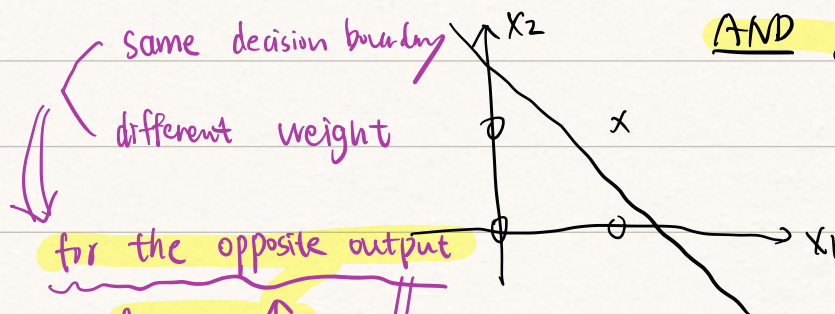 same decision boundary
different weight
for the opposite output
X2
AND
X1
x